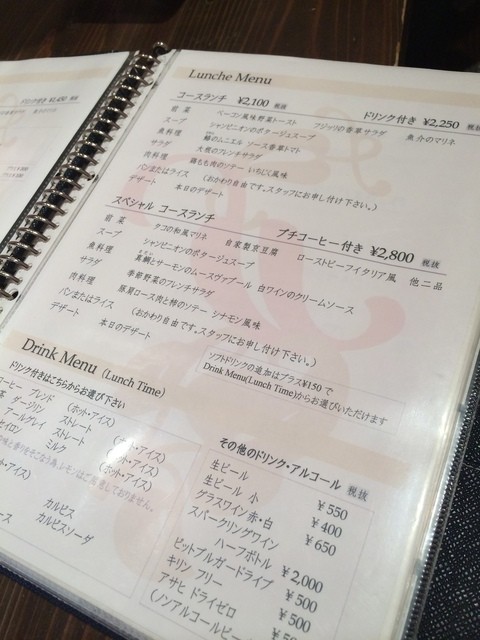 Lunche Menu
コースランチ ¥2,100 税抜 ドリンク付き ¥2,250 税抜
前菜 ベーコン風味野菜トースト フジッリの香草サラダ 魚介のマリネ
スープ シャンピニオンのポタージュスープ
魚料理 鰆のムニエル ソース香草トマト
サラダ 大根のフレンチサラダ
肉料理 鶏もも肉のソテー いちじく風味
パンまたはライス (おかわり自由です。スタッフにお申し付け下さい。)
デザート 本日のデザート
スペシャル コースランチ プチコーヒー付き ¥2,800 税抜
前菜 タコの和風マリネ 自家製京豆腐 ローストビーフイタリア風 他二品
スープ シャンピニオンのポタージュスープ
魚料理 真鯛とサーモンのムースヴァプール 白ワインのクリームソース
サラダ 季節野菜のフレンチサラダ
肉料理 豚肩ロース肉と柿のソテー シナモン風味
パンまたはライス (おかわり自由です。スタッフにお申し付け下さい。)
デザート 本日のデザート
ソフトドリンクの追加はプラス¥150で
Drink Menu(Lunch Time)からお選びいただけます
Drink Menu (Lunch Time)
ドリンク付きはこちらからお選び下さい
コーヒー ブレンド (ホット・アイス)
茶 ダージリン ストレート (ホット・アイス)
アールグレイ ストレート (ホット・アイス)
セイロン ミルク (ホット・アイス)
カルピス
カルピスソーダ
その他のドリンク・アルコール 税抜
生ビール ¥550
生ビール 小 ¥400
グラスワイン赤・白 ¥650
スパークリングワイン
ハーフボトル ¥2,000
ピットブルガードライブ ¥500
キリン フリー ¥500
アサヒ ドライゼロ
(ノンアルコールビール